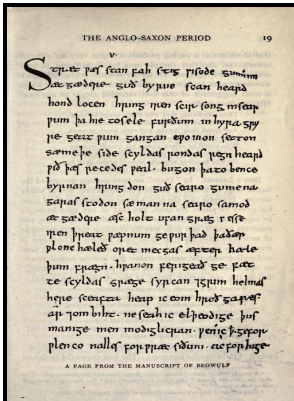 THE ANGLO-SAXON PERIOD 19
V·
Stræt ƿæs stan fah stig ƿisode gumum
æt gædere guð byrne scan heard
hond locen hring iren scir song in sear
ƿum þa hie to sele furðum in hyra gry
re geat ƿum gangan cƿomon setton
sæmeþe side scyldas rondas regn heard
ƿið þæs recedes ƿeal · bugon þa to bence
byrnan hring don guð searo gumena
garas stodon sæ man na searo samod
æt gædere æsc holt ufan græg
iren þreat ƿæpnum ge ƿur þad þa ðær
ƿlonc hæleð oret mecgas æfter hæle
þum frægn · hƿanon ferigeað ge fæt
te scyldas græge syrcan ⁊ grim helmas
here sceafta heap ic eom hroð gares
ar ⁊ om biht · ne seah ic elþeodige þus
manige men modiglicran · ƿen ic ꝥ ge for
ƿlen co nalles for ƿræc siðum · ac for hige
A PAGE FROM THE MANUSCRIPT OF BEOWULF